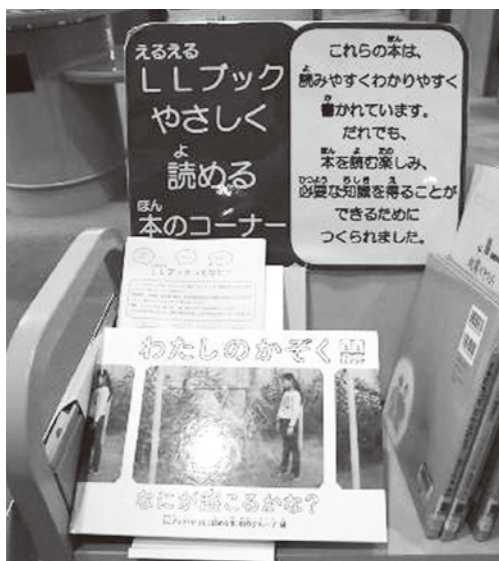 えるえる
LLブック
やさしく
よ
読める
ほん
本のコーナー
ほん
これらの本は、
よ
読みやすくわかりやすく
か
書かれています。
だれでも、
ほん よ たの
本を読む楽しみ、
ひつよう ちしき え
必要な知識を得ることが
できるために
つくられました。
LLブックってなに?
わたしのかぞく
なにが起こるかな?